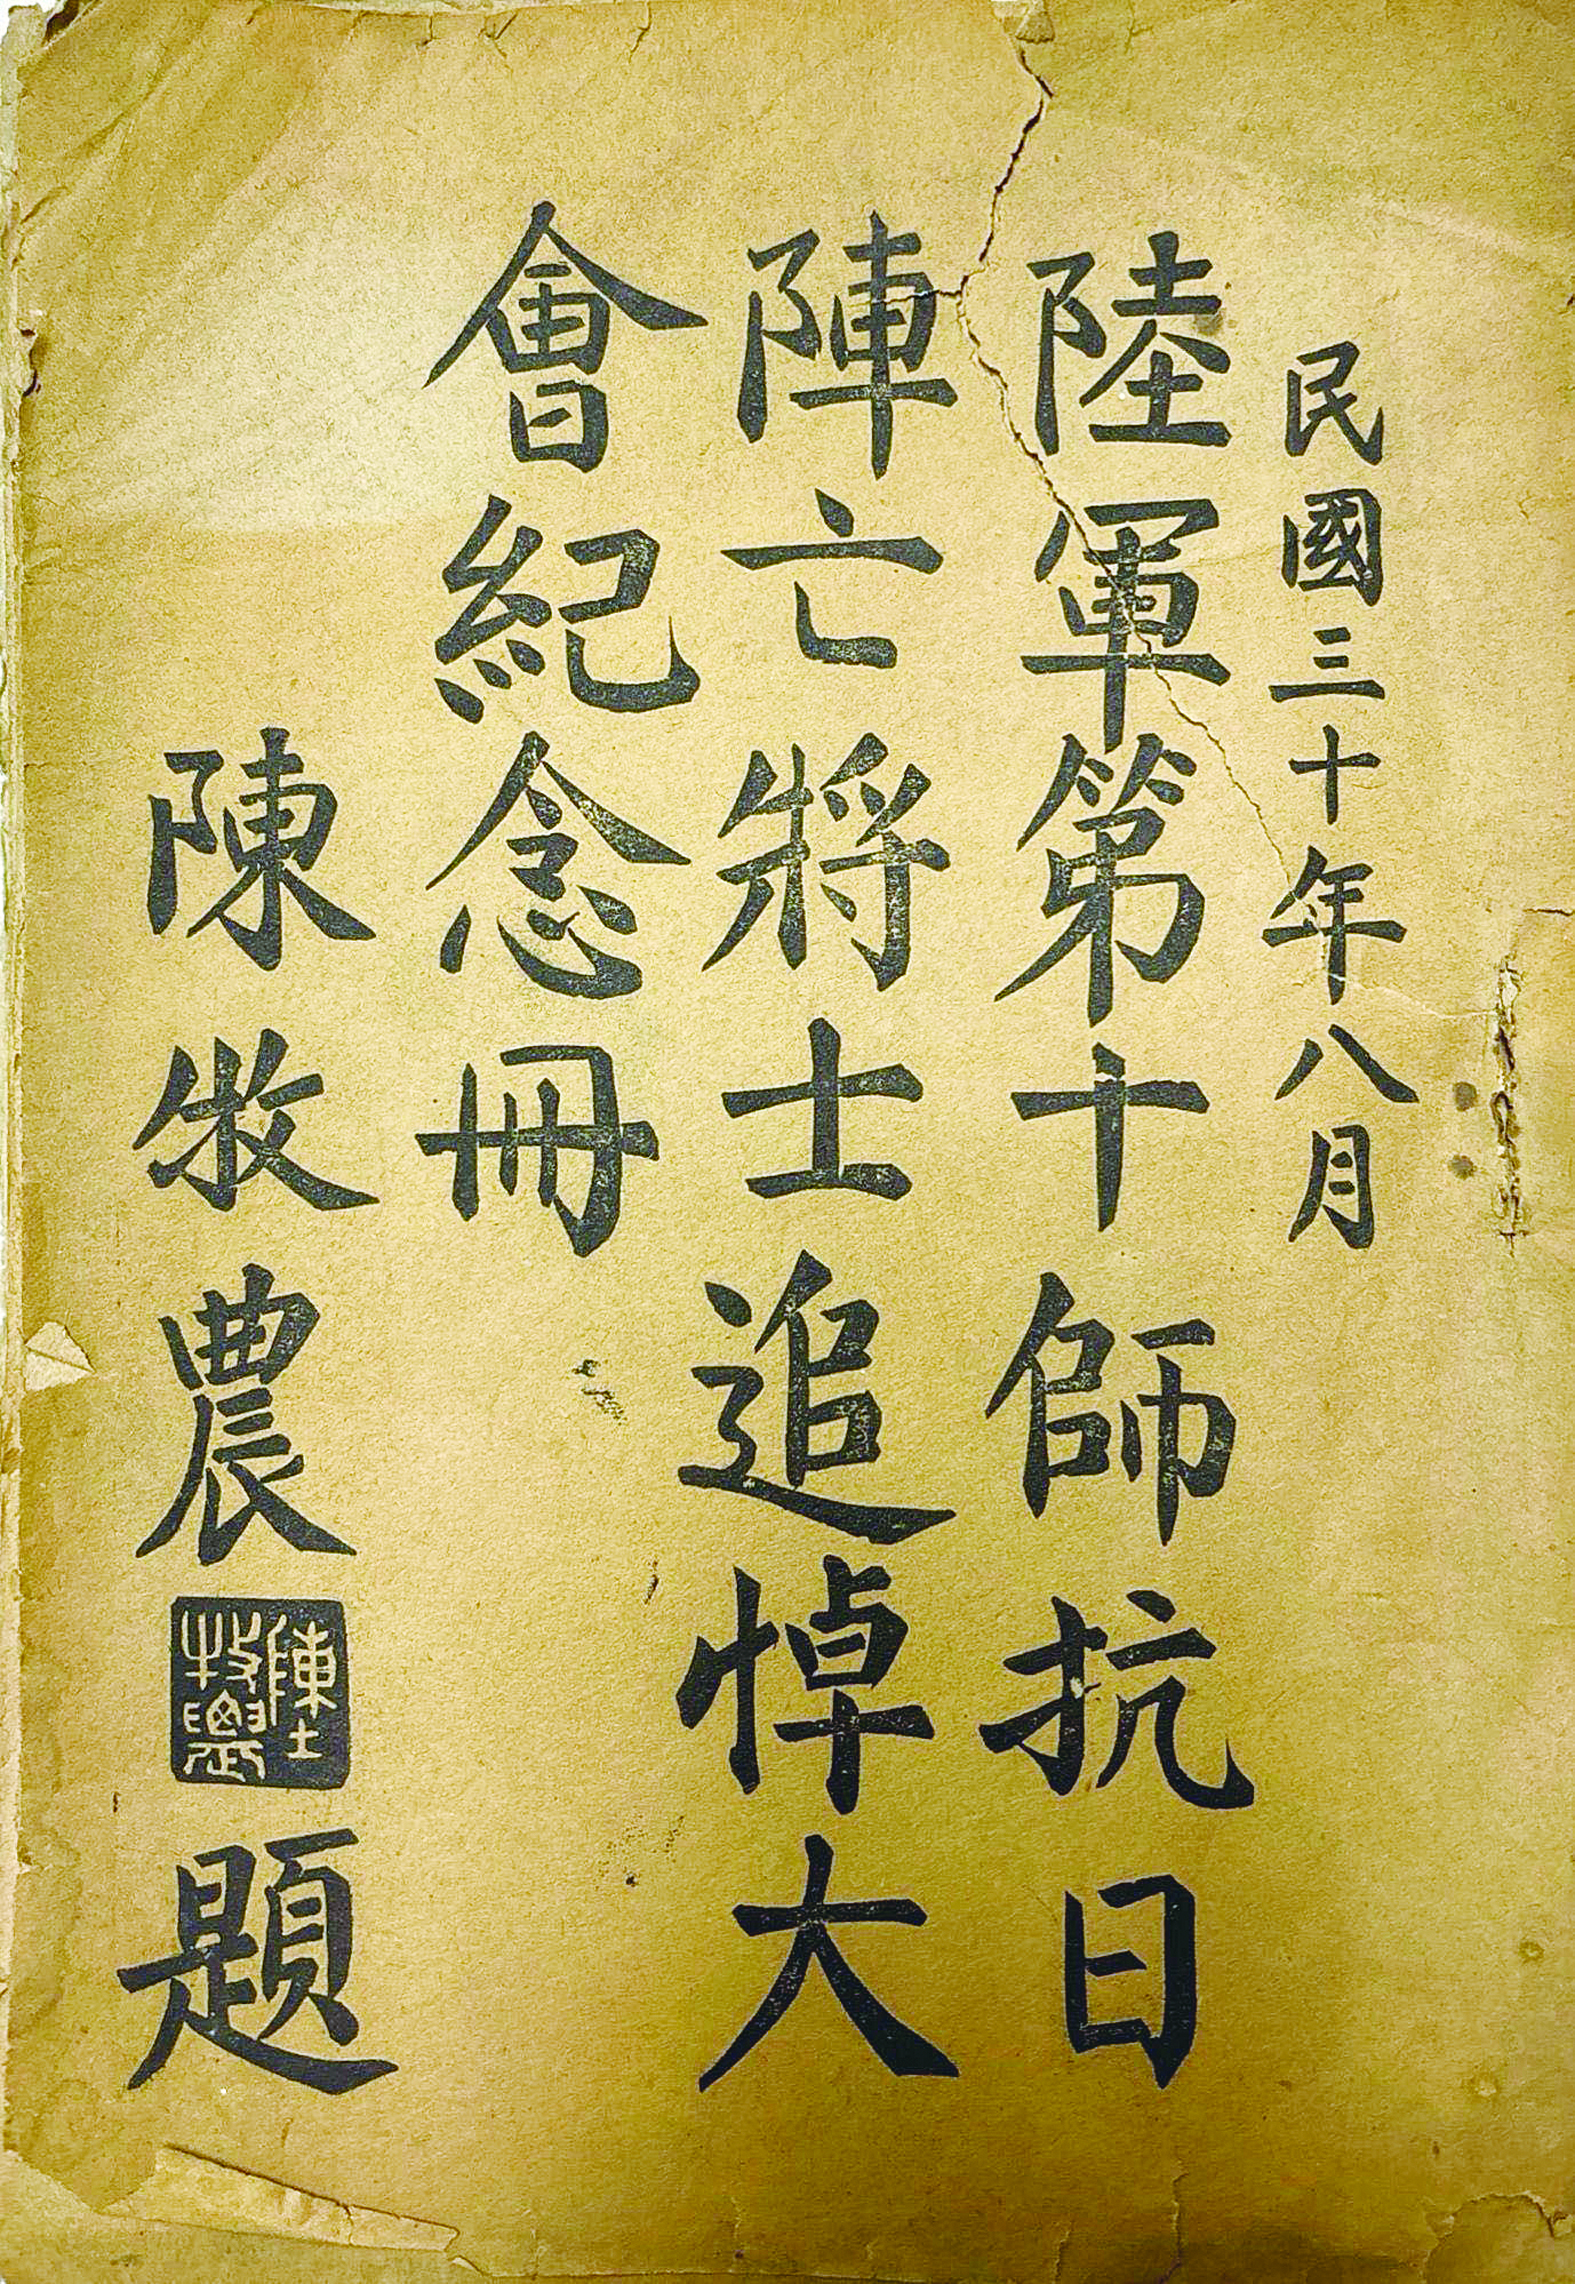 民國三十年八月
陸軍第十師抗日
陣亡將士追悼大
會紀念冊
陳牧農
陳牧農
題